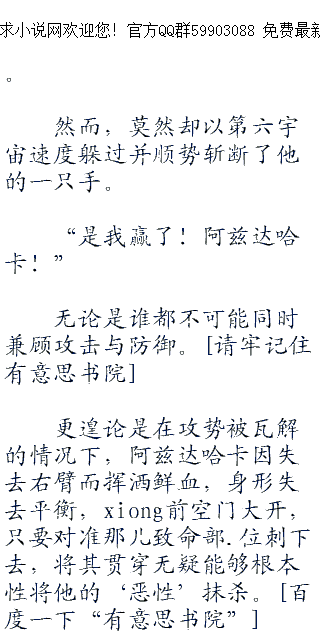 求小说网欢迎您！官方QQ群59903088 免费最新
。
然而，莫然却以第六宇
宙速度躲过并顺势斩断了他
的一只手。
“是我赢了！阿兹达哈
卡！”
无论是谁都不可能同时
兼顾攻击与防御。[请牢记住
有意思书院]
更遑论是在攻势被瓦解
的情况下，阿兹达哈卡因失
去右臂而挥洒鲜血，身形失
去平衡，xiong前空门大开，
只要对准那儿致命部.位刺下
去，将其贯穿无疑能够根本
性将他的‘恶性’抹杀。[百
度一下“有意思书院”]